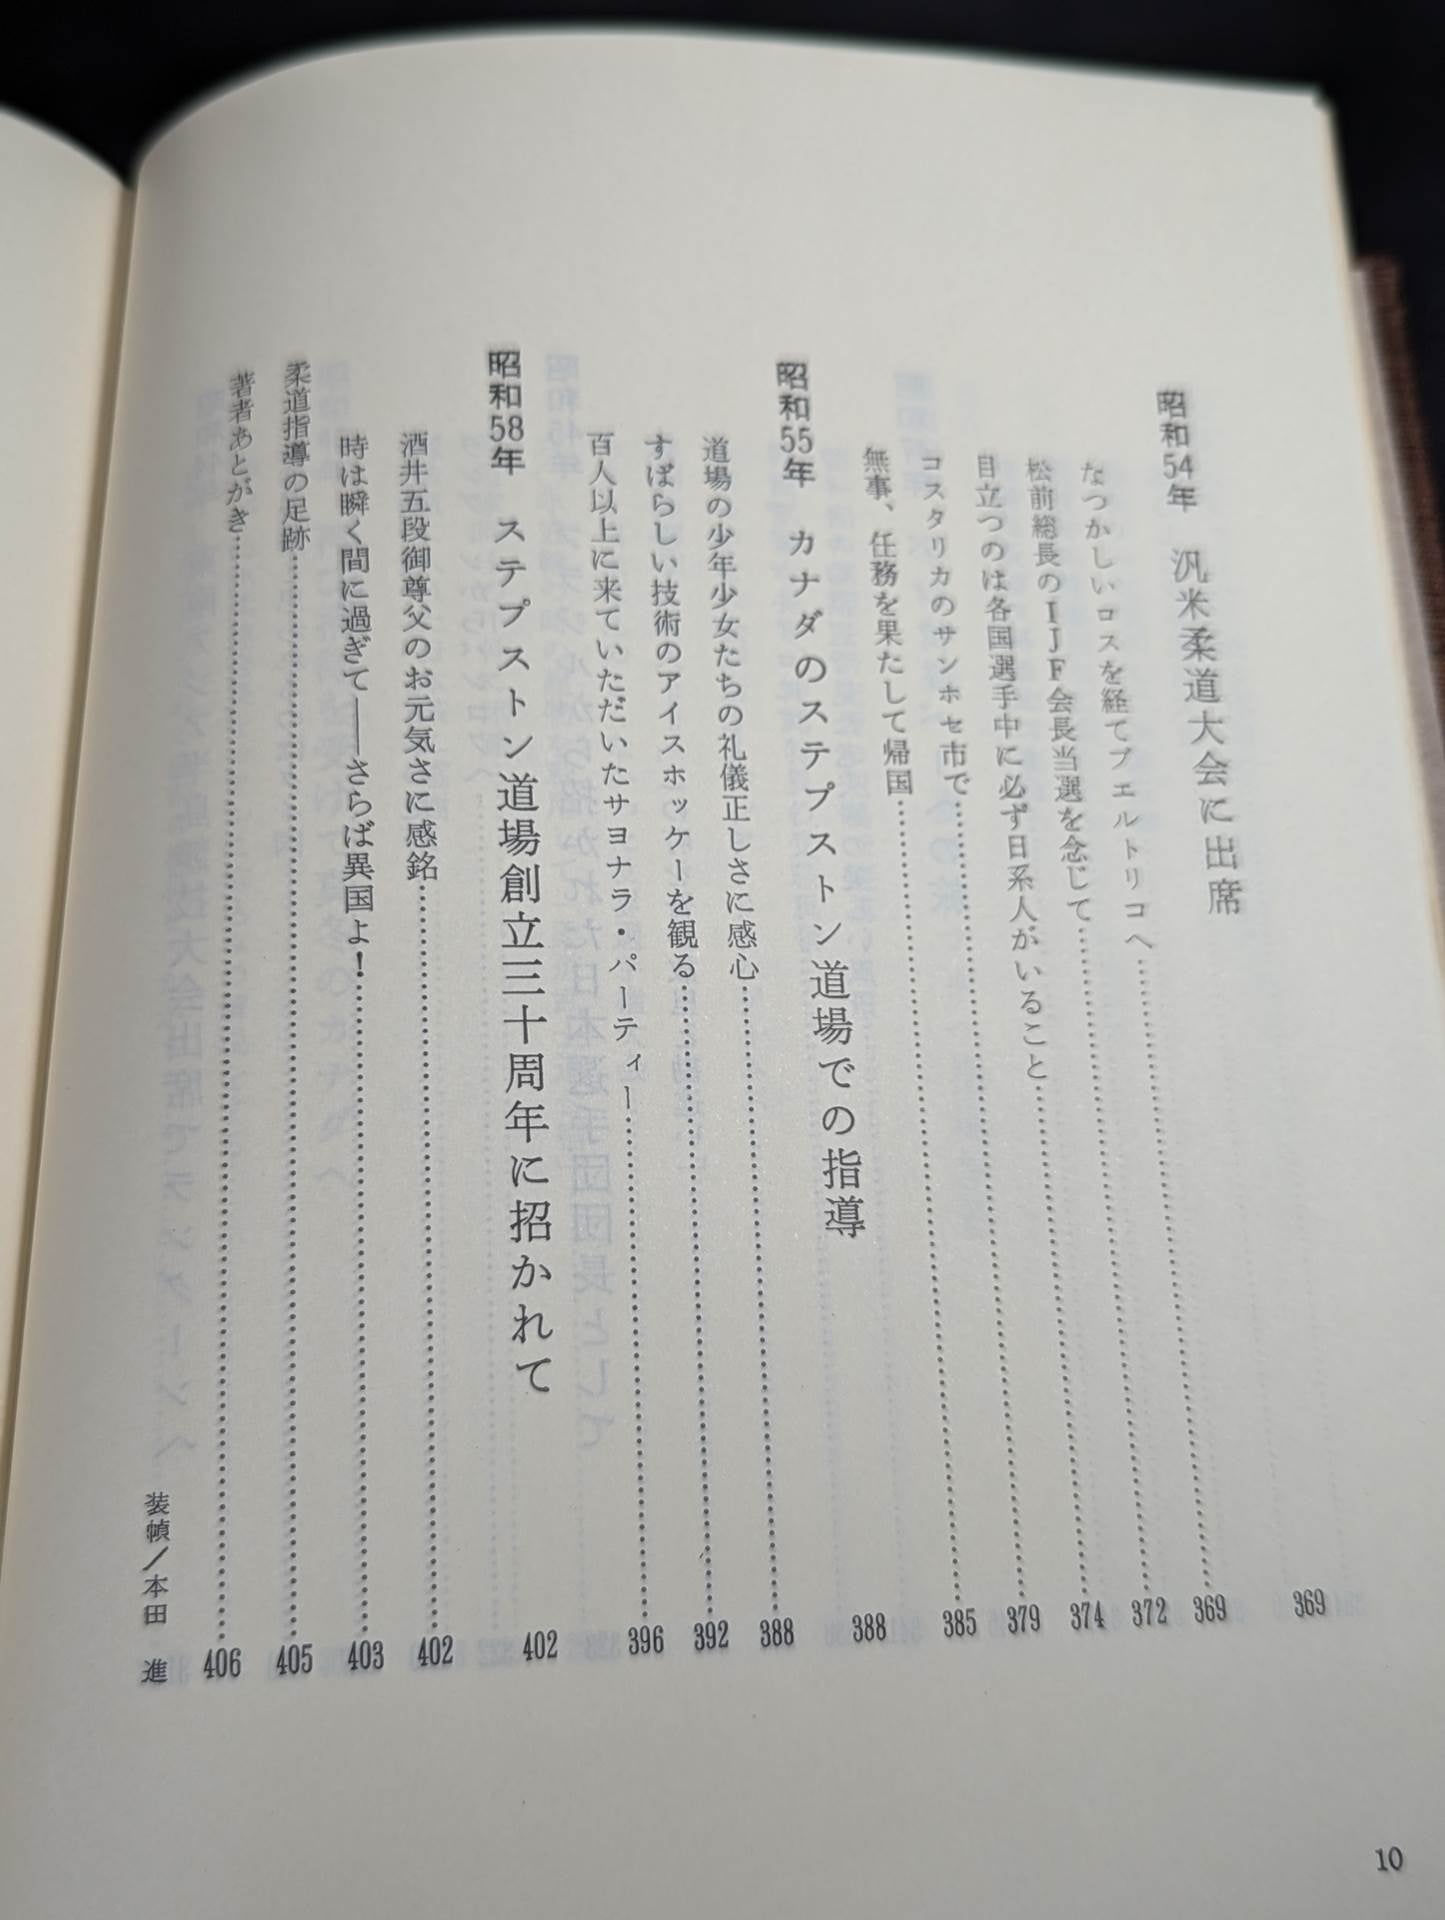 昭和54年　汎米柔道大会に出席　369
なつかしいロスを経てプエルトリコへ……369
松前総長のＩＪＦ会長当選を念じて……372
目立つのは各国選手中に必ず日系人がいること……374
コスタリカのサンホセ市で……379
無事、任務を果たして帰国……385
昭和55年　カナダのステプストン道場での指導　388
道場の少年少女たちの礼儀正しさに感心……388
すばらしい技術のアイスホッケーを観る……392
百人以上に来ていただいたサヨナラ・パーティー……396
昭和58年　ステプストン道場創立三十周年に招かれて　402
酒井五段御尊父のお元気さに感銘……402
時は瞬く間に過ぎて――さらば異国よ！……403
柔道指導の足跡……405
著者あとがき……406
装幀／本田　進
10